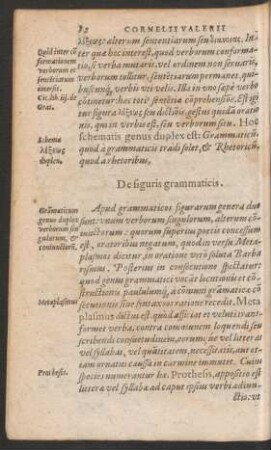 82 CORNELII VALERII
λέξεως: alterum sententiarum seu διανοίας. In-
Quid inter cō
formationem
verborum et
sententiarum
intersit.
Cic. lib. iij. de
Orat.
ter quæ hoc interest, quod verborum conformatio
, si verba mutaris, vel ordinem non seruaris,
verborum tollitur, sententiarum permanet, qui-
buscunq́, verbis uti velis. Illa in uno sæpè verbo
continetur, hæc totā sententiā cōprehensione. Est igi-
tur figura λέξεως seu dictiōis, gestus quidā oratio-
nis, qui in verbis est, seu verborum situ. Hoc
Schema
λέξεως
duplex.
schematis genus duplex est: Grammaticū,
quod à grammaticis tradi solet, & Rhetoricū,
quod à rhetoribus.
De figuris grammaticis.
Grāmaticum
genus duplex
verborum sin
gulorum, &
coniunctorū.
Apud grammaticos figurarum genera duo
sunt: unum verborum singulorum, alterum con-
iunctorum: quorum superius poëtis concessum
est, oratoribus negatum, quod in versu Meta-
plasmus dicitur, in oratione verò soluta Barba-
rismus. Posterius in consecutione spectatur:
quod genus grammatica vocāt locutionis et con-
structionis paululumq́, à cōmuni grammaticæ con-
secutionis siue syntaxeos ratione recedit. Meta-
Metaplasmus
plasmus dictus est, quòd afficiat et velutì trans-
formet verba, contra communem loquendi seu
scribendi consuetudinem, eoruḿq́ue vel litteras
vel syllabas, vel quātitatem, necessitatis, aut et-
iam ornatus causa in carmine immutet. Cuius
Prothesis.
species numerantur hæ. Prothesis, appositio est
litteræ vel syllabæ ad caput ipsius verbi adiun-
ctio: vt